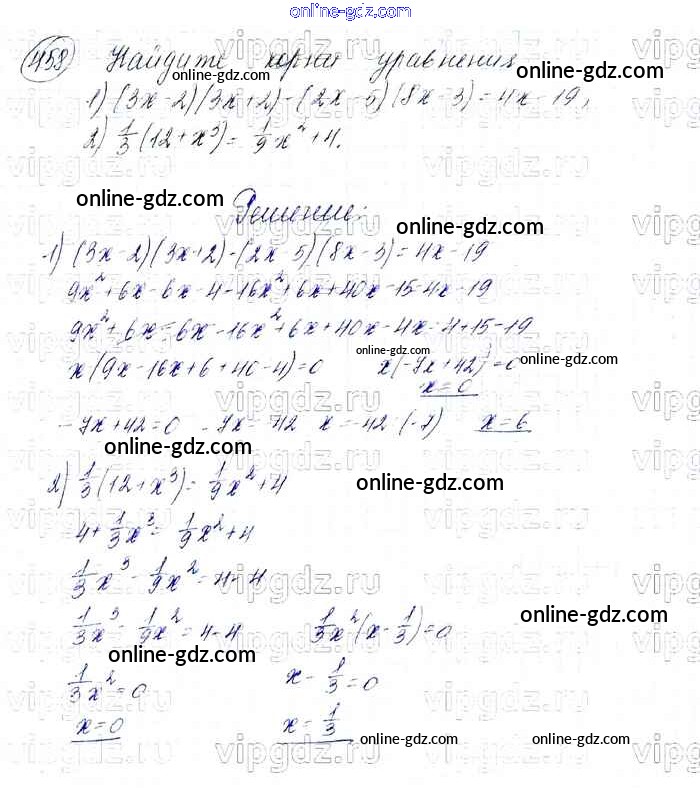 online-gdz.com
458 Найдите корни уравнения online-gdz.com
1) (3x-2)(3x+2)-(2x-5)(8x-3)=4x-19,
2) 1/3(12+x³)=1/9x²+4.
online-gdz.com Решение: online-gdz.com
1) (3x-2)(3x+2)-(2x-5)(8x-3)=4x-19
9x²+6x-6x-4-16x²+6x+40x-15-4x-19
9x²+6x-6x-16x²+6x+40x-4x-4+15-19
x(9x-16x+6+40-4)=0 x(-7x+42)=0 online-gdz.com online-gdz.com
x=0
-7x+42=0 -7x=-42 x=-42:(-7) x=6
online-gdz.com
2) 1/3(12+x³)=1/9x²+4 online-gdz.com
4+1/3x³=1/9x²+4
1/3x³-1/9x²=4-4
online-gdz.com
1/3x³-1/9x²=4-4 1/3x²(x-1/3)=0
online-gdz.com
1/3x²=0 x-1/3=0
x=0 x=1/3
online-gdz.com online-gdz.com
vipgdz.ru